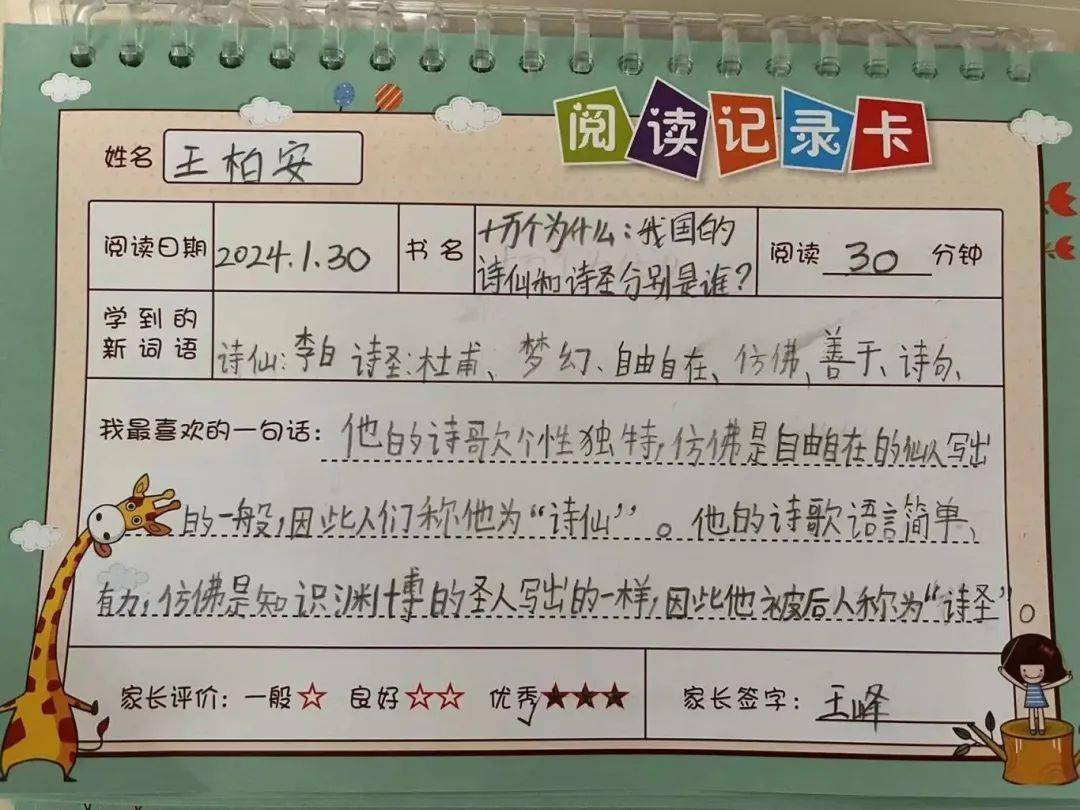 阅读记录卡
姓名 王柏安
阅读日期 2024.1.30 书名 十万个为什么：我国的诗仙和诗圣分别是谁？ 阅读 30 分钟
学到的新词语 诗仙：李白 诗圣：杜甫、梦幻、自由自在、仿佛、善于、诗句、
我最喜欢的一句话：他的诗歌个性独特，仿佛是自由自在的仙人写出
的一般，因些人们称他为“诗仙”。他的诗歌语言简单、
有力，仿佛是知识渊博的圣人写出的一样，因些他被后人称为“诗圣”。
家长评价：一般☆ 良好☆☆ 优秀★★★ 家长签字：王峰